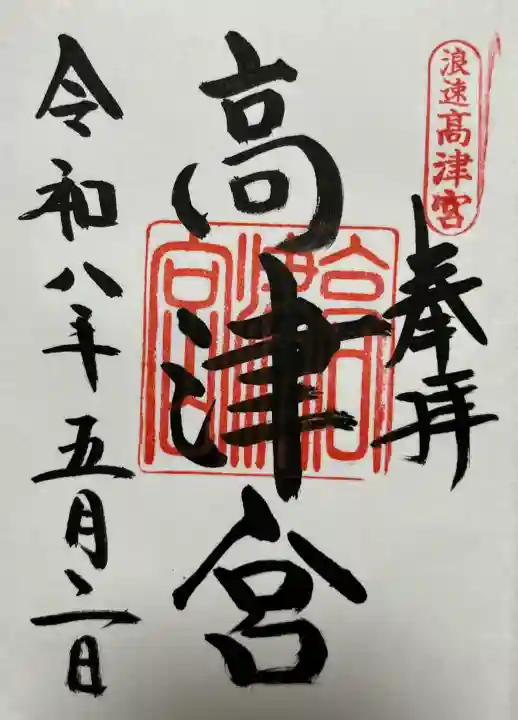 浪速高津宮
奉拝
高津宮
高津宮
令和八年五月二日